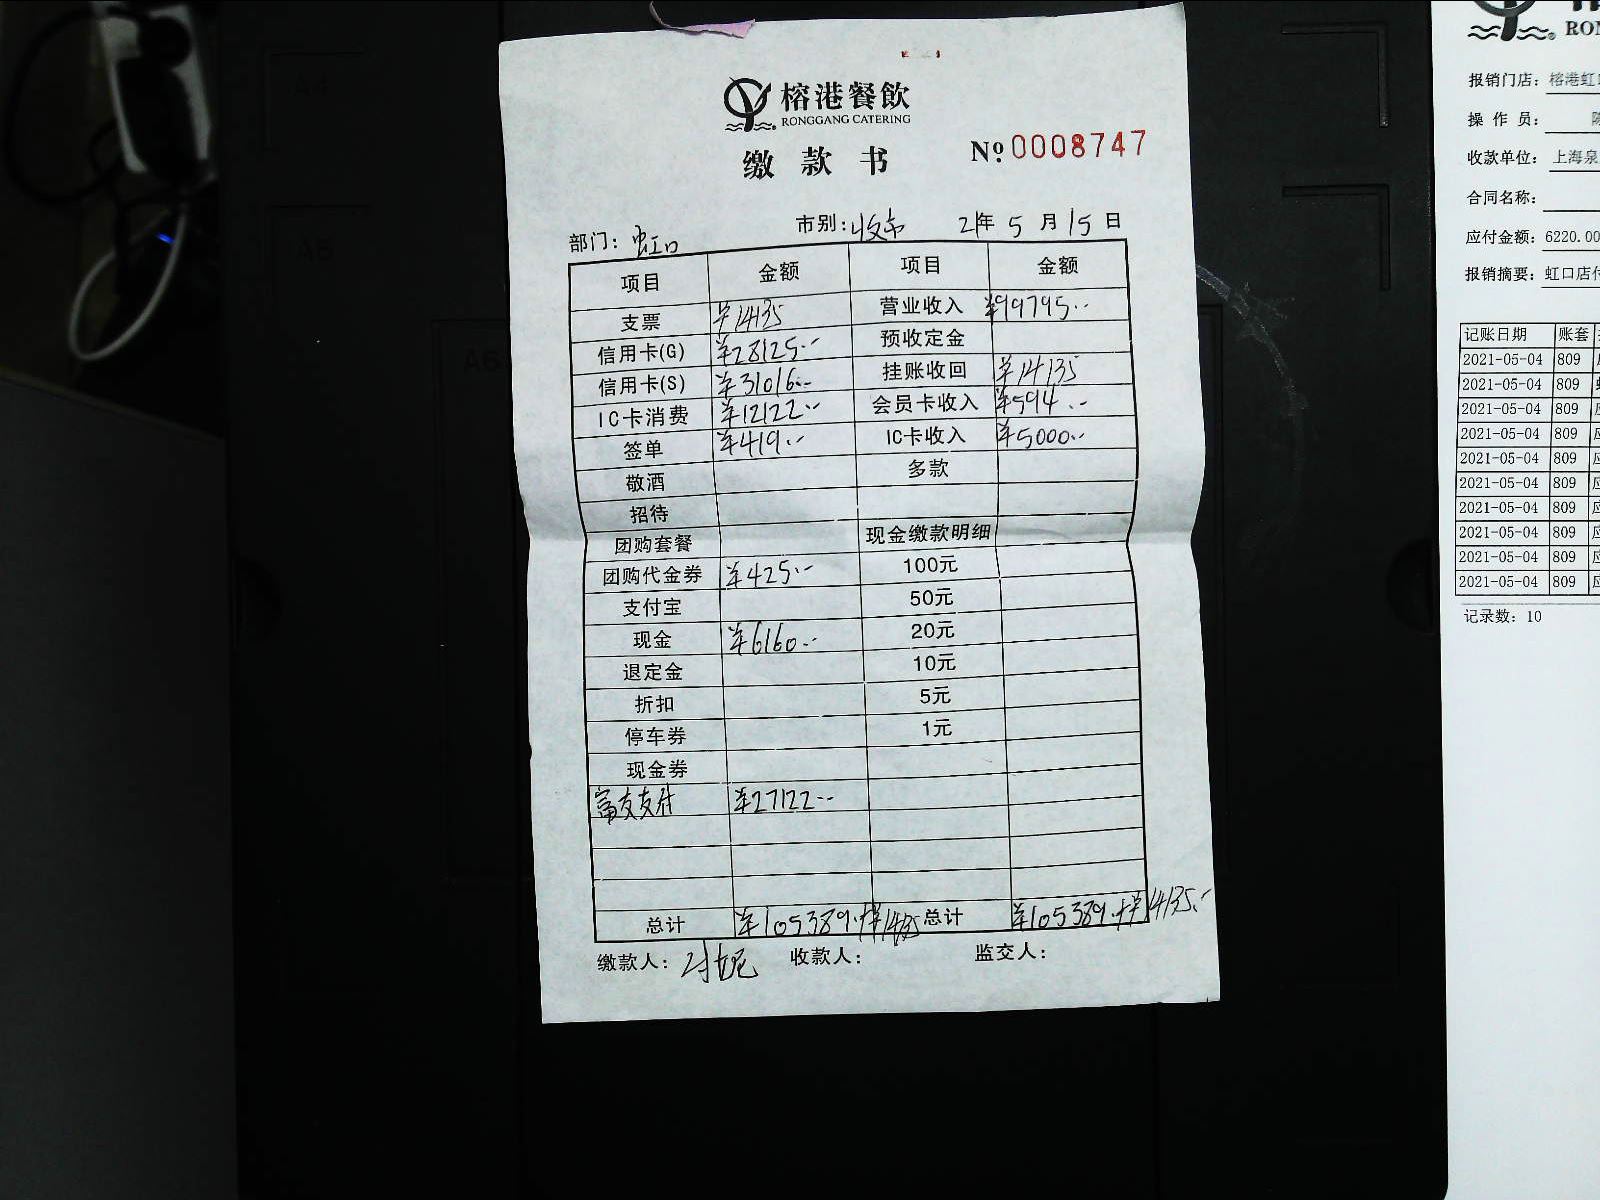 榕港餐飲
RONGGANG CATERING
缴款书 №0008747
部门: 虹口 市别: 收市 21年 5月15日
项目 金额 项目 金额
支票 ¥14135 营业收入 ¥99795.--
信用卡(G) ¥28125.-- 预收定金
信用卡(S) ¥31016.-- 挂账收回 ¥14135
IC卡消费 ¥12122.-- 会员卡收入 ¥594.--
签单 ¥419.-- IC卡收入 ¥5000.--
敬酒 多款
招待
团购套餐 现金缴款明细
团购代金券 ¥425.-- 100元
支付宝 50元
现金 ¥6160.-- 20元
退定金 10元
折扣 5元
停车券 1元
现金券
富友支付 ¥27122.--
总计 ¥105389.+¥14135 总计 ¥105389.+¥14135.-
缴款人: 收款人: 监交人:
报销门店: 榕港虹
操作员:
收款单位: 上海泉
合同名称:
应付金额: 6220.00
报销摘要: 虹口店付
记账日期 账套
2021-05-04 809
2021-05-04 809
2021-05-04 809
2021-05-04 809
2021-05-04 809
2021-05-04 809
2021-05-04 809
2021-05-04 809
2021-05-04 809
2021-05-04 809
记录数: 10